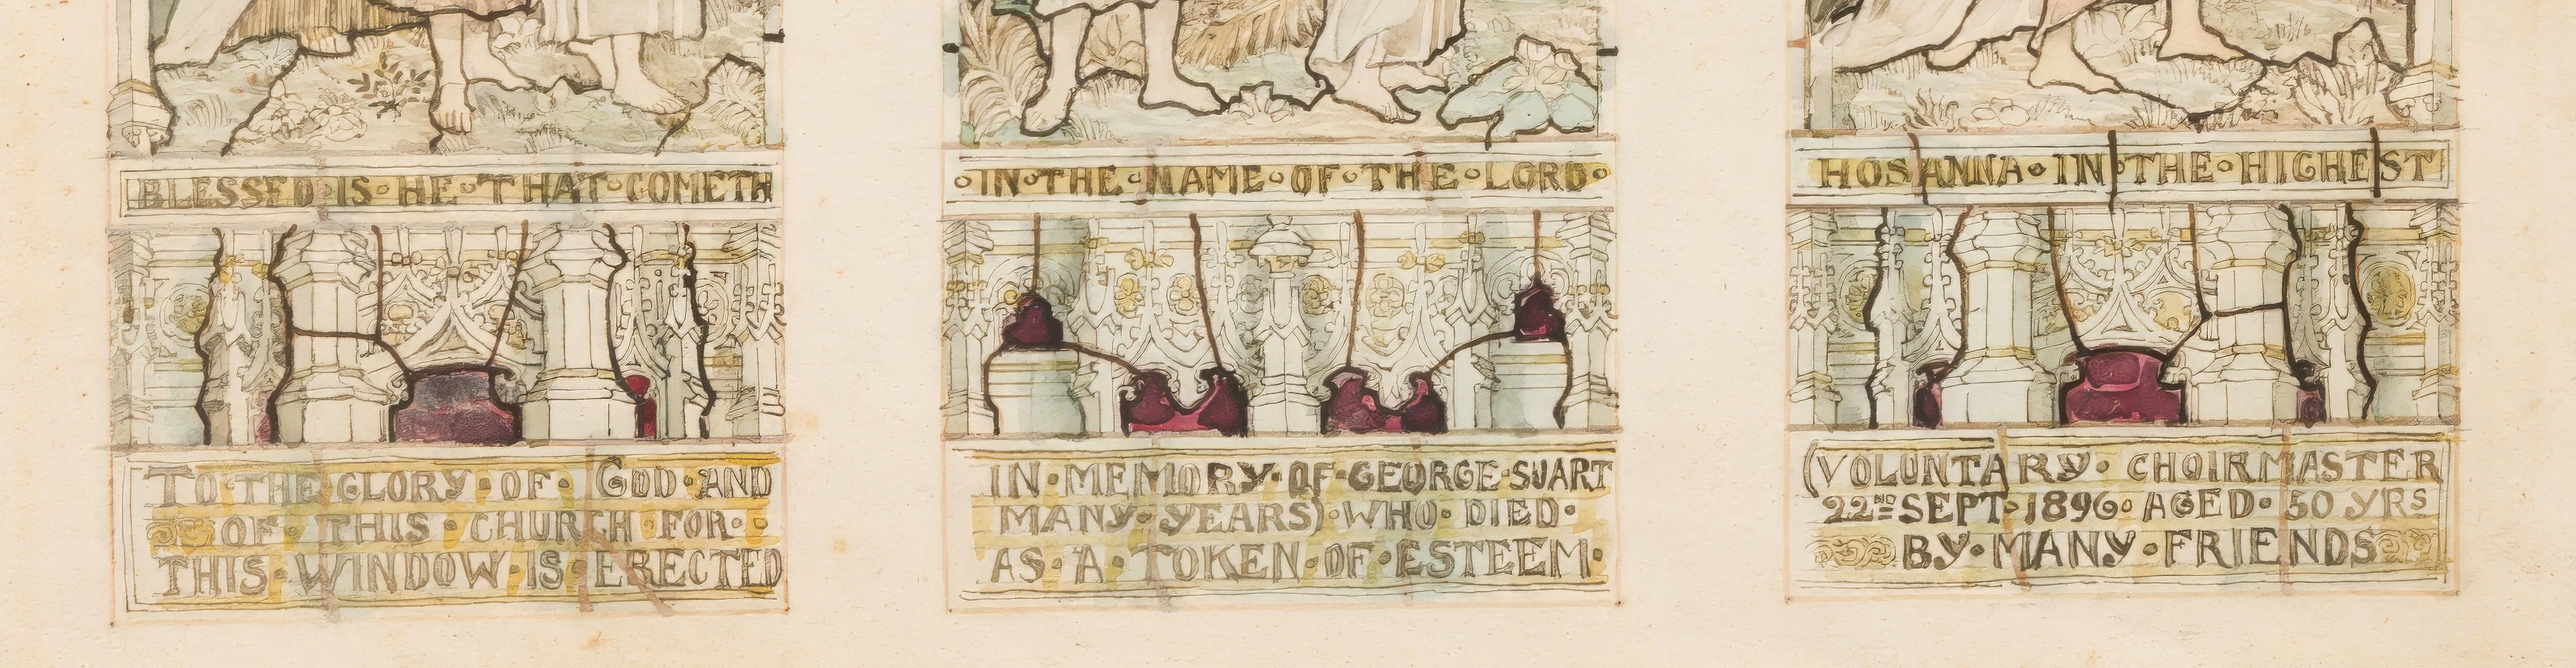 BLESSED·IS·HE·THAT·COMETH ·IN·THE·NAME·OF·THE·LORD· HOSANNA·IN·THE·HIGHEST
TO·THE·GLORY·OF·GOD·AND IN·MEMORY·OF·GEORGE·SUART (VOLUNTARY·CHOIRMASTER
OF·THIS·CHURCH·FOR· MANY·YEARS)·WHO·DIED· 22ND SEPT·1896·AGED·50 YRS
THIS·WINDOW·IS·ERECTED AS·A·TOKEN·OF·ESTEEM· BY·MANY·FRIENDS